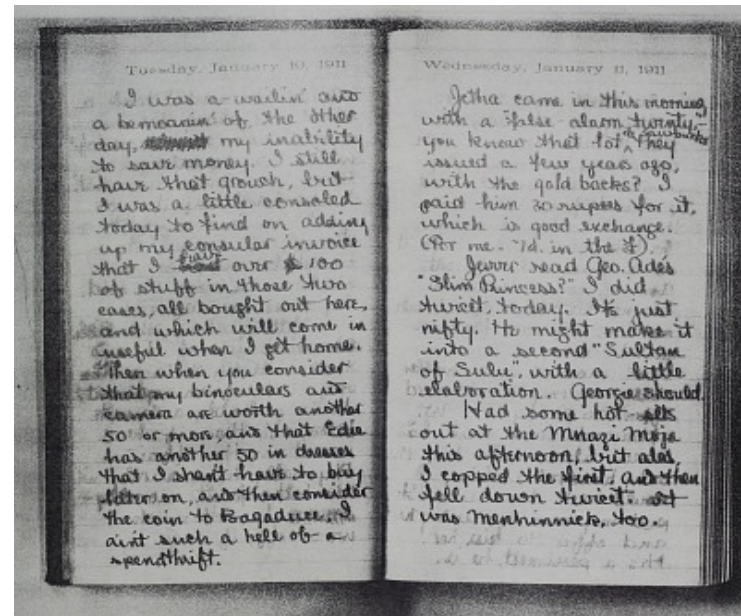 Tuesday, January 10, 1911
I was a-wailin' and
a bemoanin' of the other
day, my inability
to save money. I still
have that grouch, but
I was a little consoled
today to find on adding
up my consular invoice
that I have over $100
of stuff in those two
cases, all bought out here,
and which will come in
useful when I get home.
Then when you consider
that my binoculars and
camera are worth another
50 or more, and that Edie
has another 50 in dresses
that I shan't have to buy
later on, and then consider
the coin to Bagaduce, I
ain't such a hell of a
spendthrift.
Wednesday, January 11, 1911
Jetha came in this morning
with a false alarm twinty,-
you know that lot of sawbucks they
issued a few years ago,
with the gold backs? I
paid him 30 rupees for it,
which is good exchange.
(For me. 7d. in the £).
Jever read Geo. Ade's
"Slim Princess?" I did
twicet, today. It's just
nifty. He might make it
into a second "Sultan
of Sulu", with a little
elaboration. Georgie should.
Had some hot sets
out at the Mnazi Moja
this afternoon, but alas,
I copped the first, and then
fell down twicet. It
was Menhinnick, too.